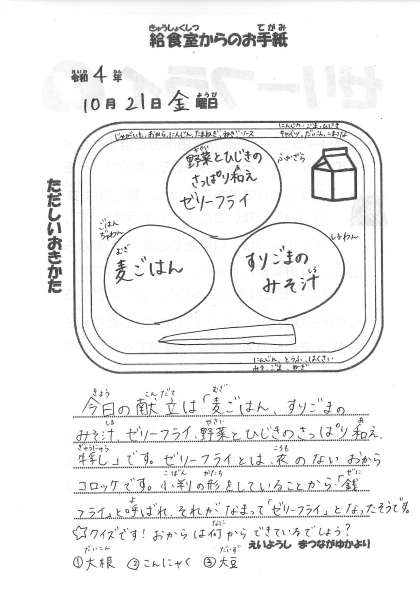 きゅうしょくしつ てがみ
給食室からのお手紙
れいわ ねん
令和 4 年
ようび
10月 21日 金 曜日
ただしいおきかた
じゃがいも、おから、にんじん、たまねぎ、ねぎ ソース
にんじん、ごま、ひじき
キャベツ、だいこん、こまつな
やさい
野菜とひじきの
さっぱり和え
ゼリーフライ
ふかざら
ごはん
ぢゃわん
むぎ
麦ごはん
しるわん
すりごまの
しる
みそ汁
にんじん、とうふ、はくさい
みそ、ごま、ねぎ
きょう こんだて むぎ
今日の献立は「麦ごはん、すりごまの
しる やさい あ
みそ汁 ゼリーフライ、野菜とひじきのさっぱり和え、
ぎゅうにゅう ころも
牛乳」です。ゼリーフライとは、衣のない おから
こばん かたち ぜに
コロッケです。小判の形をしていることから「銭
よ
フライ」と呼ばれ、それが なまって「ゼリーフライ」となったそうです。
なに
☆クイズです!おからは何からできているでしょう?
えいようし まつながゆかより
だいこん だいず
①大根 ②こんにゃく ③大豆